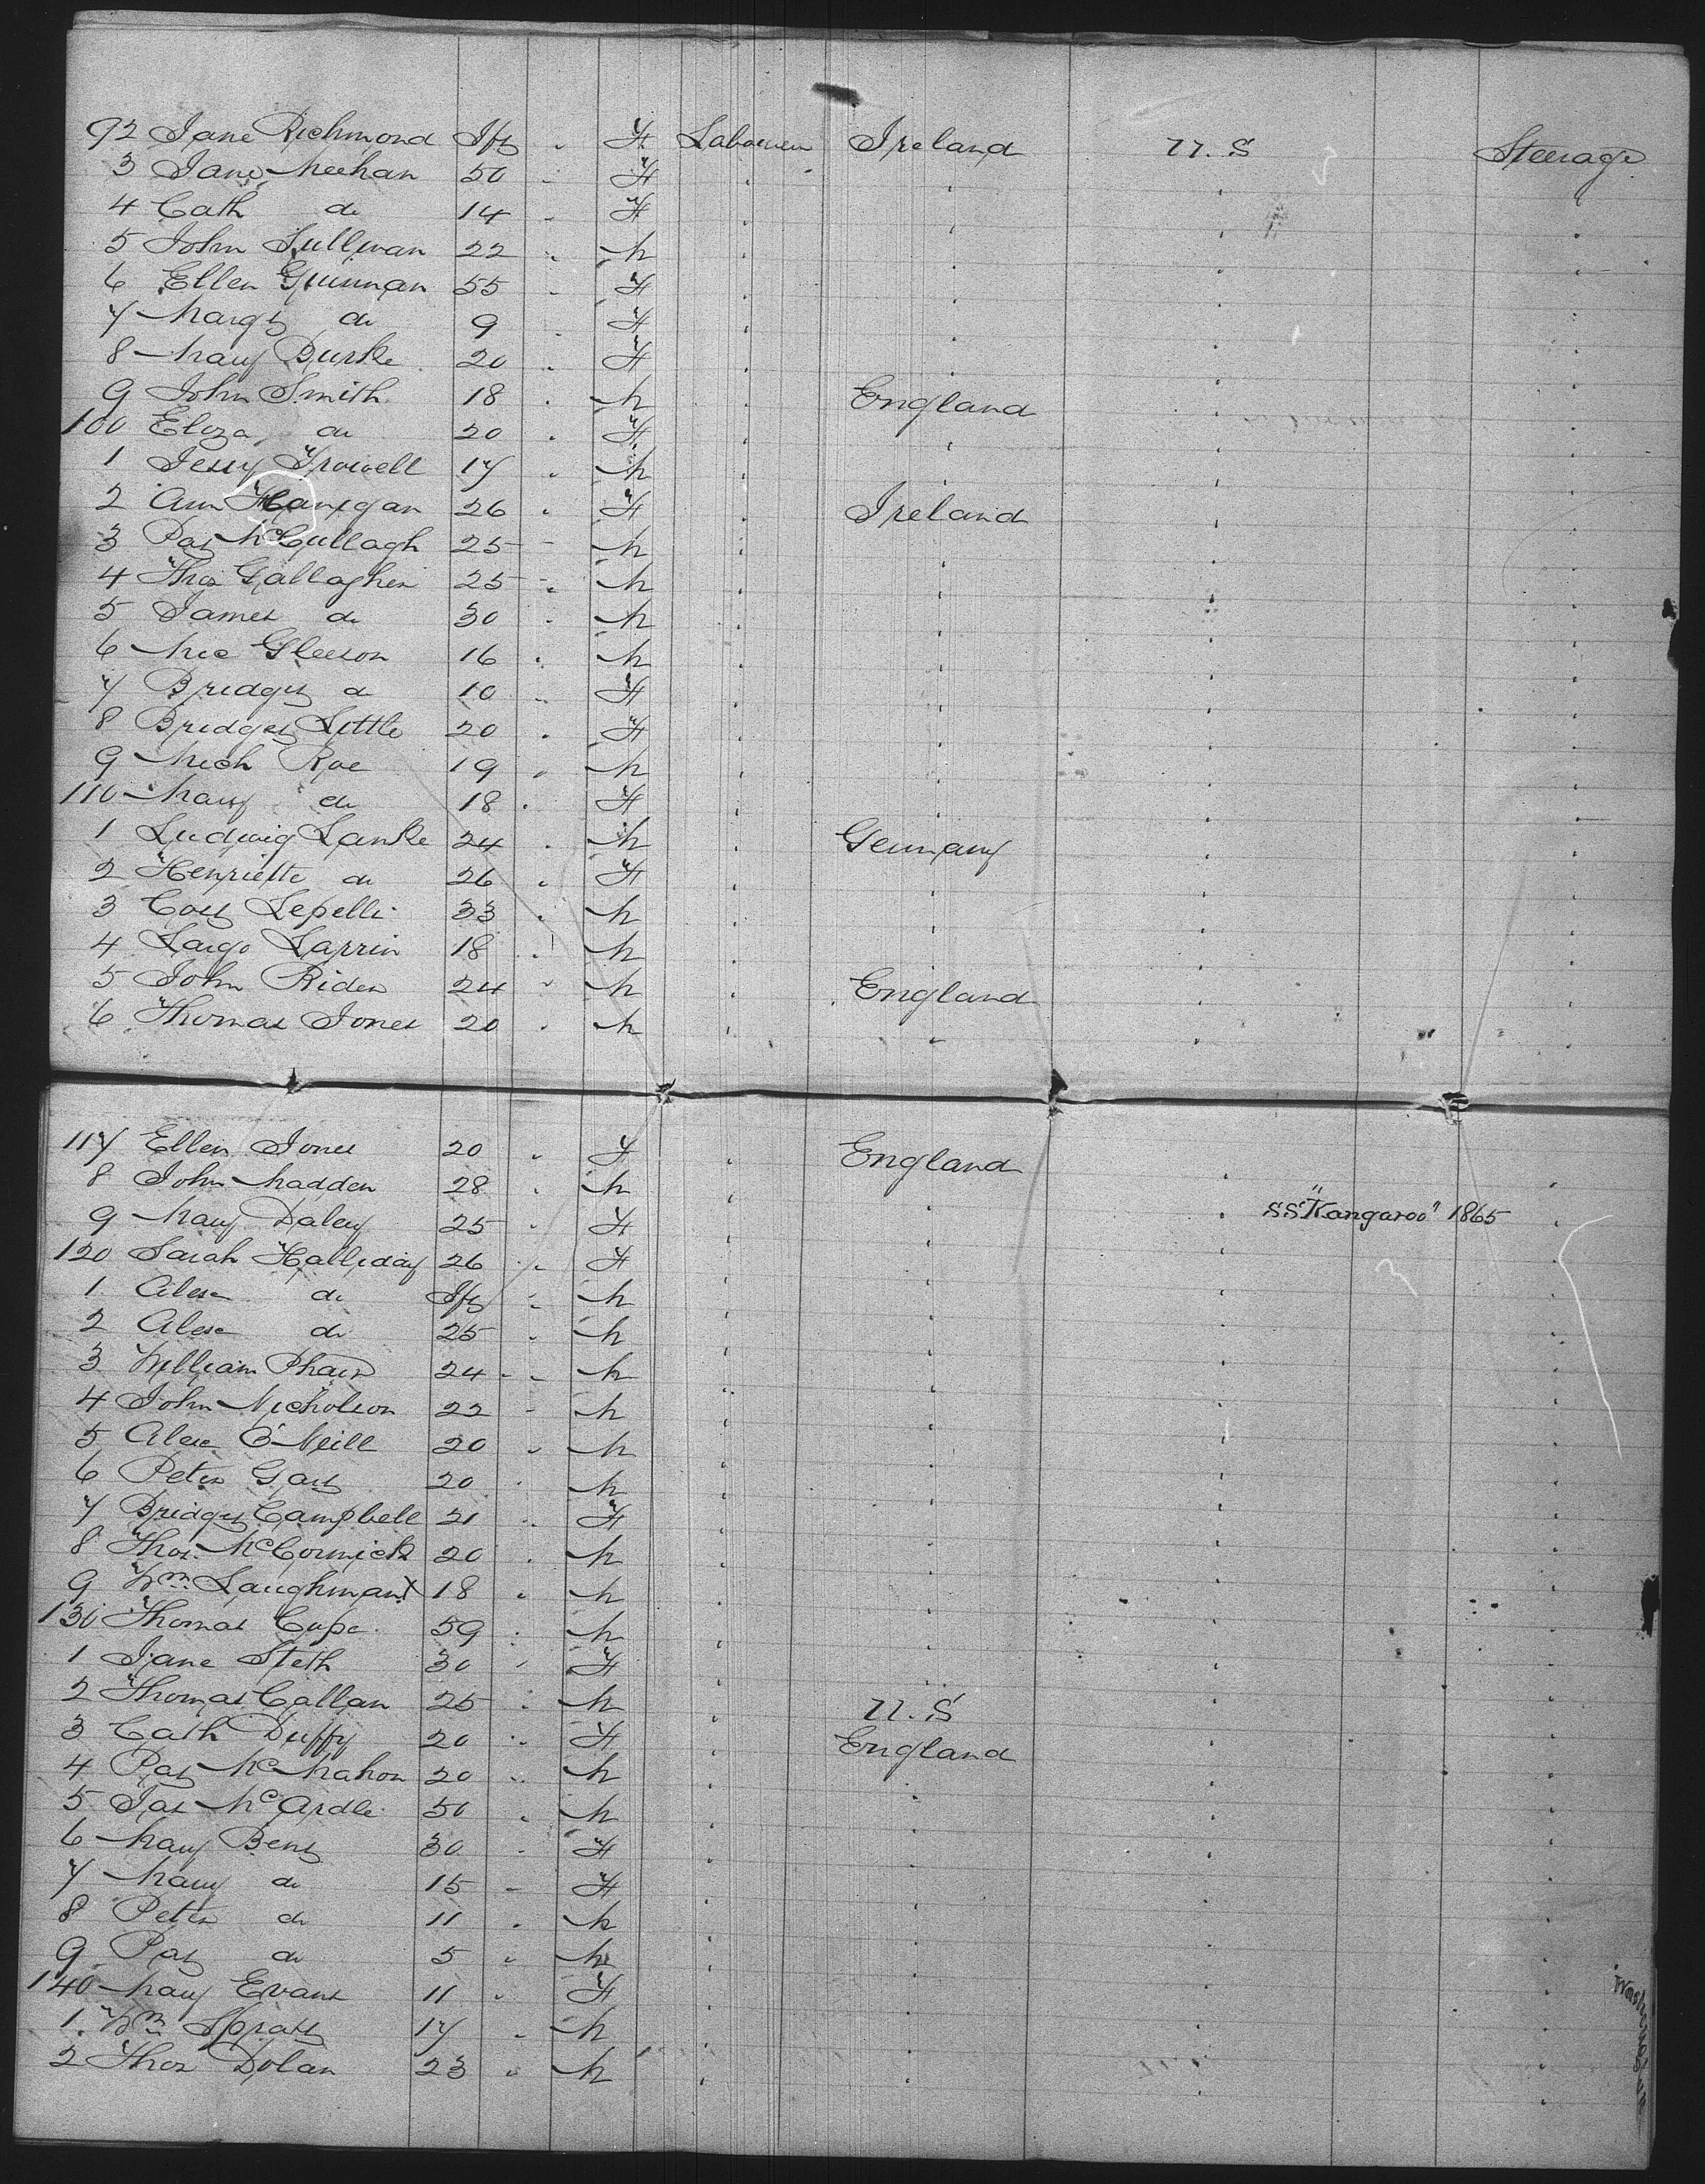 92 Jane Richmond Inft " F Labourer Ireland U.S Steerage
3 Jane Meehan 50 " F " " " "
4 Cath do 14 " F " " " "
5 John Sullivan 22 " M " " " "
6 Ellen 55 " F " " " "
7 Margt do 9 " F " " " "
8 Mary Burke 20 " F " " " "
9 John Smith 18 " M " England " "
100 Eliza do 20 " F " " " "
1 17 " M " " " "
2 Ann Hanigan 26 " F " Ireland " "
3 Pat McCullagh 25 " M " " " "
4 Thos Gallagher 25 " M " " " "
5 James do 30 " M " " " "
6 Mic Gleeson 16 " M " " " "
7 Bridget do 10 " F " " " "
8 Bridget Little 20 " F " " " "
9 Mich Roe 19 " M " " " "
110 Mary do 18 " F " " " "
1 Ludwig Lanke 24 " M " Germany " "
2 Henriette do 26 " F " " " "
3 Lepelli 33 " M " " " "
4 Larrin 18 " M " " " "
5 John Rider 24 " M " England " "
6 Thomas Jones 20 " M " " " "
117 Ellen Jones 20 " F " England " "
8 John Madden 28 " M " " " "
SS "Kangaroo" 1865
9 Mary Daley 25 " F " " " "
120 Sarah Halliday 26 " F " " " "
1 Alex do Inft " M " " " "
2 Alex do 25 " M " " " "
3 William Phair 24 " M " " " "
4 John Nicholson 22 " M " " " "
5 Alex O'Neill 20 " M " " " "
6 Peter 20 " M " " " "
7 Bridget Campbell 21 " F " " " "
8 Thos McCormick 20 " M " " " "
9 Wm Laughman 18 " M " " " "
130 Thomas Cope 59 " M " " " "
1 Jane Steth 30 " F " " " "
2 Thomas Callan 25 " M " U.S " "
3 Cath Duffy 20 " F " England " "
4 Pat McMahon 20 " M " " " "
5 Jas McArdle 50 " M " " " "
6 Mary Bent 30 " F " " " "
7 Mary do 15 " F " " " "
8 Peter do 11 " M " " " "
9 Pat do 5 " M " " " "
140 Mary Evans 11 " F " " " "
1 Wm Spratt 17 " M " " " "
2 Thos Dolan 23 " M " " " "